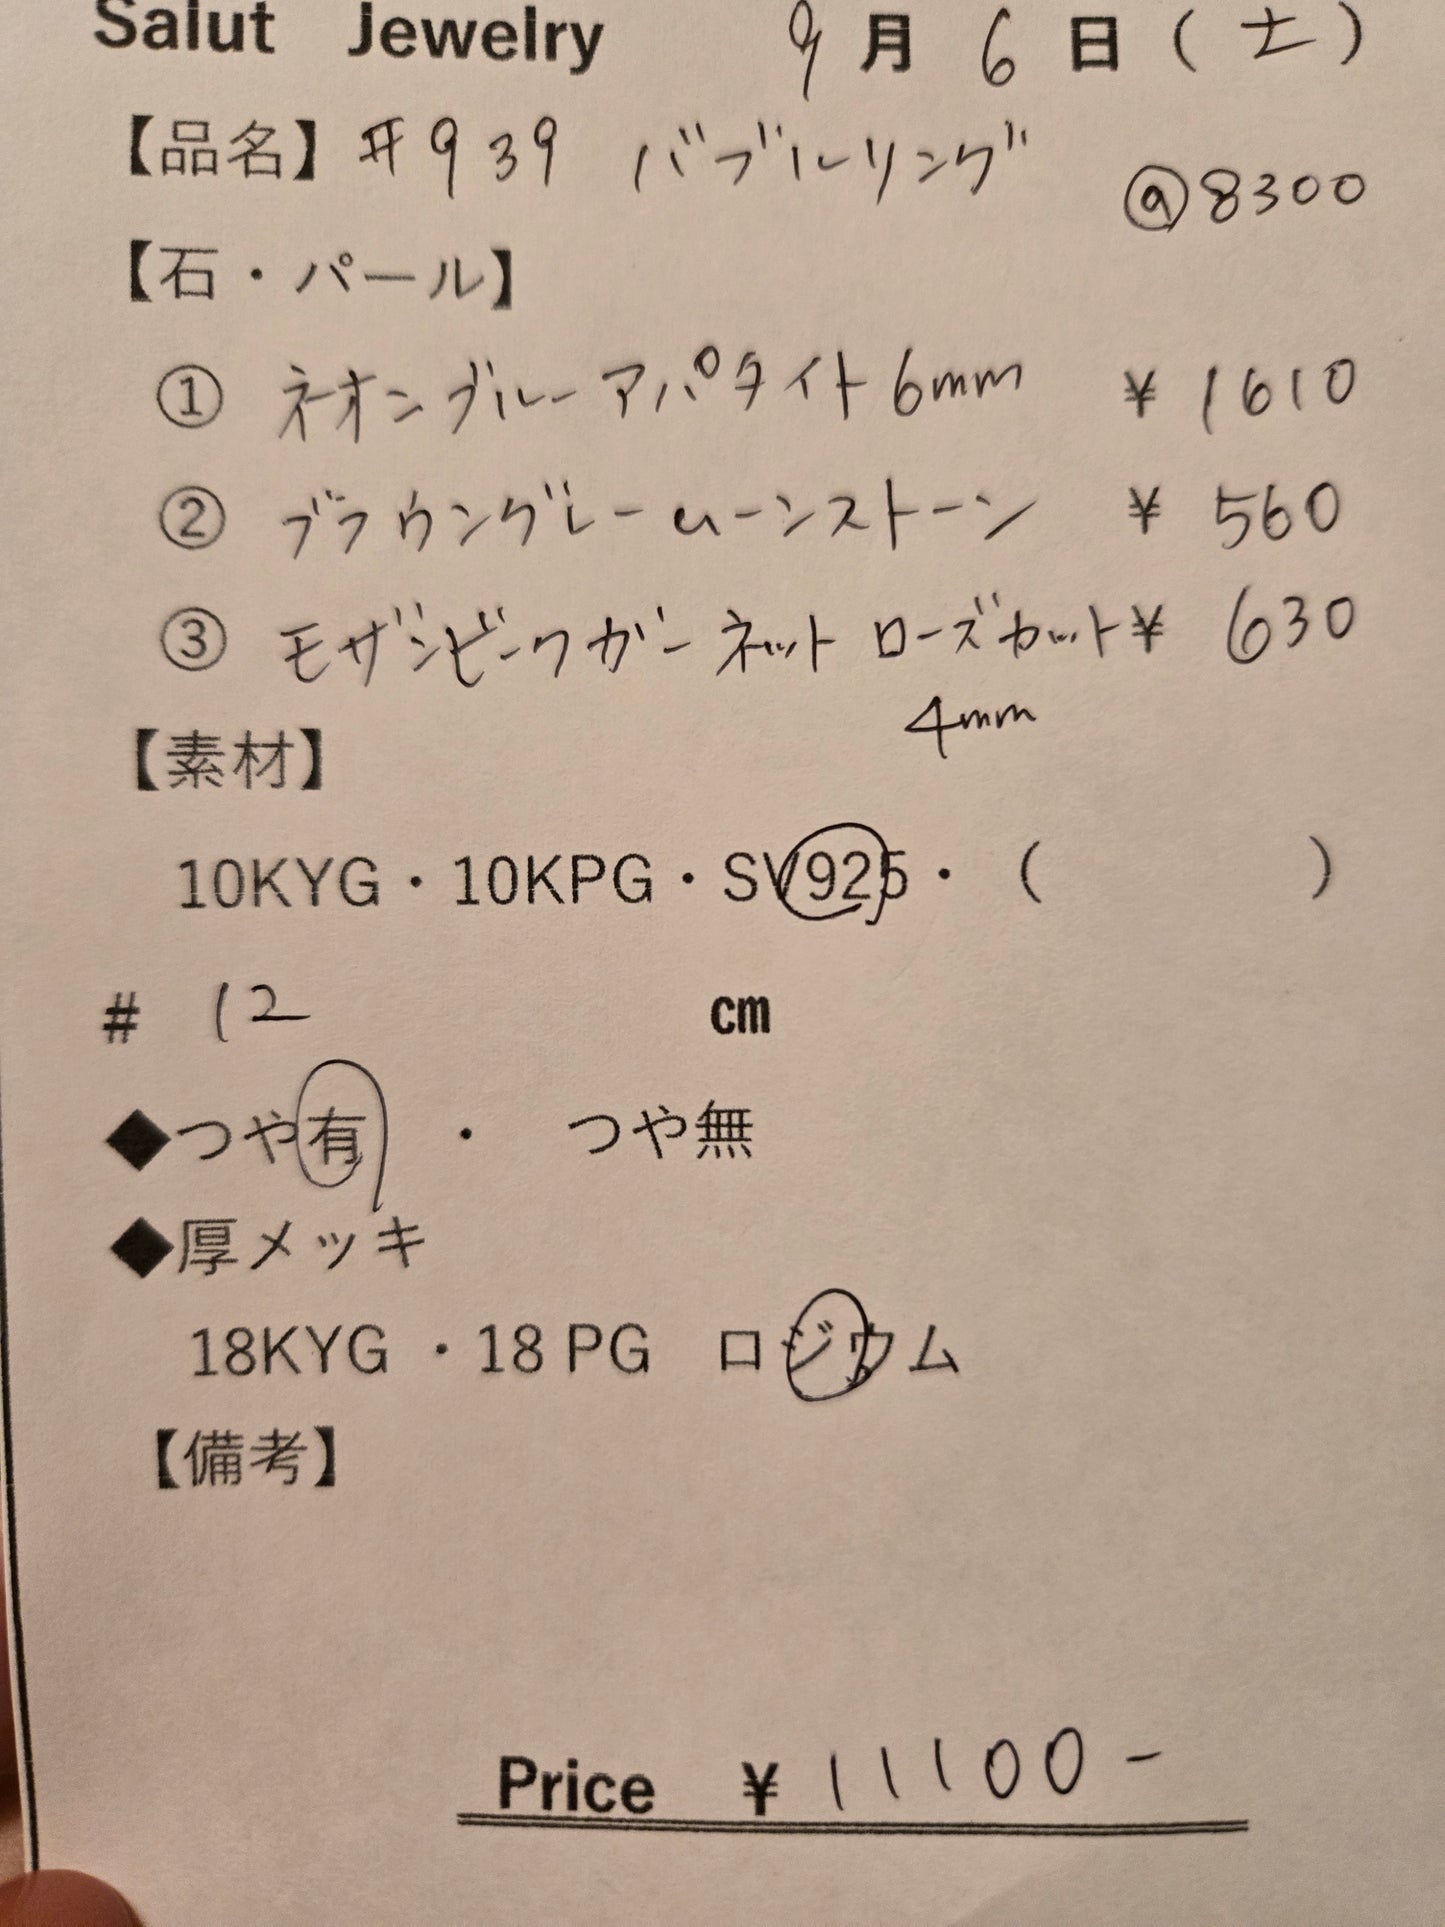 Salut Jewelry 9月6日(土)
【品名】#939 バブルリング
@8300
【石・パール】
① ネオンブルーアパタイト6mm ¥1610
② ブラウングレームーンストーン ¥560
③ モザンビークガーネット ローズカット¥630
4mm
【素材】
10KYG・10KPG・SV925・( )
# 12 cm
◆つや有 ・ つや無
◆厚メッキ
18KYG ・18 PG ロジウム
【備考】
Price ¥11100-